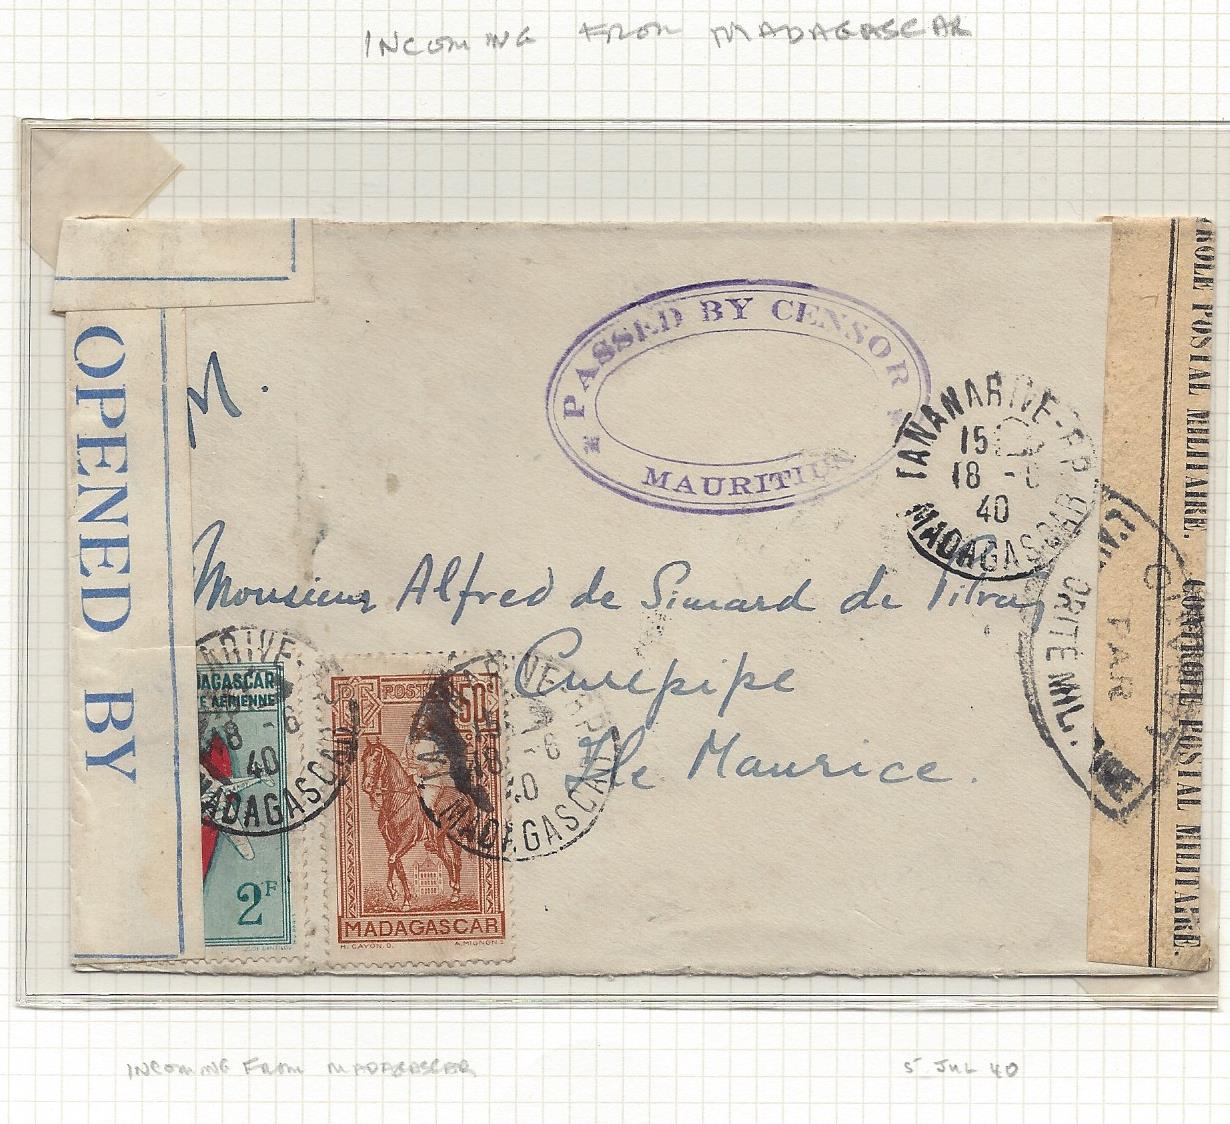 INCOMING FROM MADAGASCAR
OPENED BY
M.
PASSED BY CENSOR
MAURITIUS
TANANARIVE-RP
15
18 -6
40
MADAGASCAR
Monsieur Alfred de Simard de Pitray
Curepipe
Ile Maurice.
MADAGASCAR
2F
18 -6
40
MADAGASCAR
POSTES
50
MADAGASCAR
H. CAYON. D.
A. MIGNON. S
-6
40
MADAGASCAR
OUVERT
PAR
L'AUTORITE MILITAIRE
CONTROLE POSTAL MILITAIRE.
CONTROLE POSTAL MILITAIRE.
INCOMING FROM MADAGASCAR
5 JUL 40